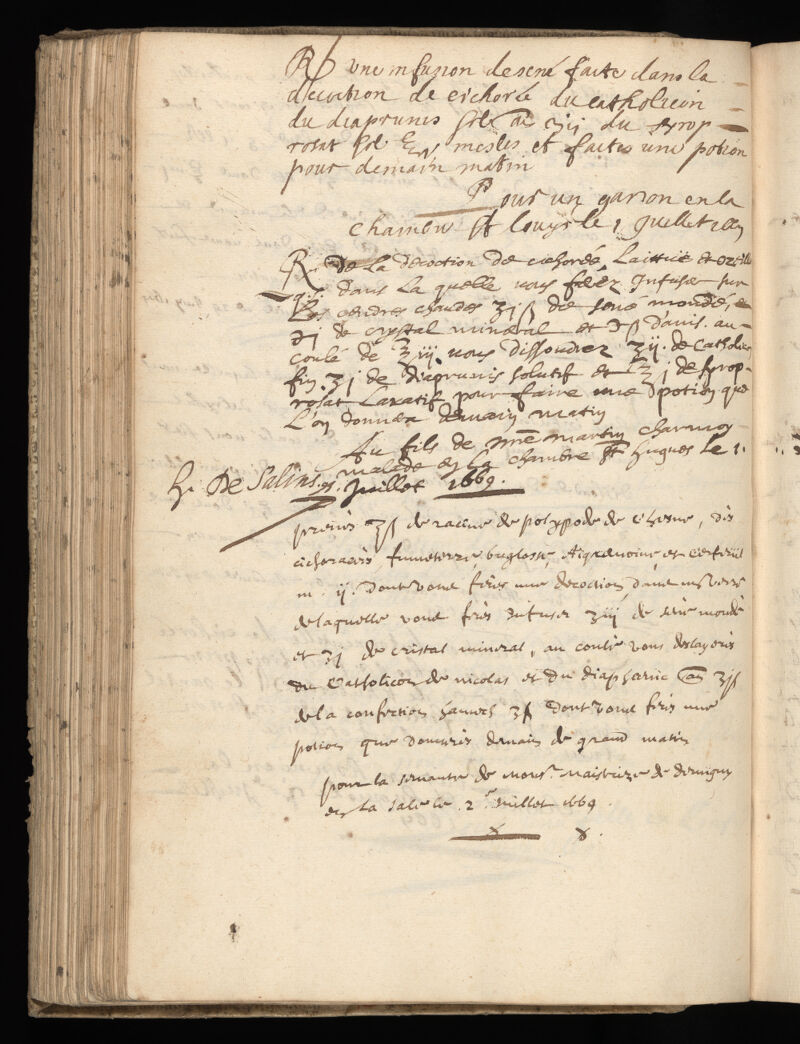 R/ une infusion de sené faite dans la
decoction de cichoré du catholicon
du diaprunis sol ãa ʒij du syrop
rosat sol mesles et faites une potion
pour demain matin
Pour un garson en la
chambre St louys le 1 Juillet
R. De la decoction de cichoré, Laittue et ozeille
q.s. dans La quelle vous ferez Infuser sur
Les cendres chaudes ʒjß de sene mondé, et
℈j de crystal mineral et ℈ß d'anis. au
coulé de ʒiij vous dissoudrez ʒij. de Catholicon
fin. ʒj de diaprunis solutif et ℥j de syrop
rosat Laxatif pour faire une potion que
L'on donnera demain matin
Au fils de me martin charmoy
malade en La chambre St hugues Le 1.
h. De Salins. Juillet 1669.
prenes ʒß de racine de polypode de chesne, des
cichoracées, fumeterre, buglosse, Aigremoine et cerfeuil
m. ij. dont vous feres une decoction, dans un verre
de laquelle vous feres infuser ʒiij de sene mondé
et ʒj de cristal mineral, au coulé vous deslayeres
du Catholicon de nicolas et du diaphenic ãa ʒjß
de la confection hamech ʒß dont vous feres une
potion que donneres demain de grand matin
pour la servante de monsr. maistrize de demigny
en la sale le 2e Juillet 1669.